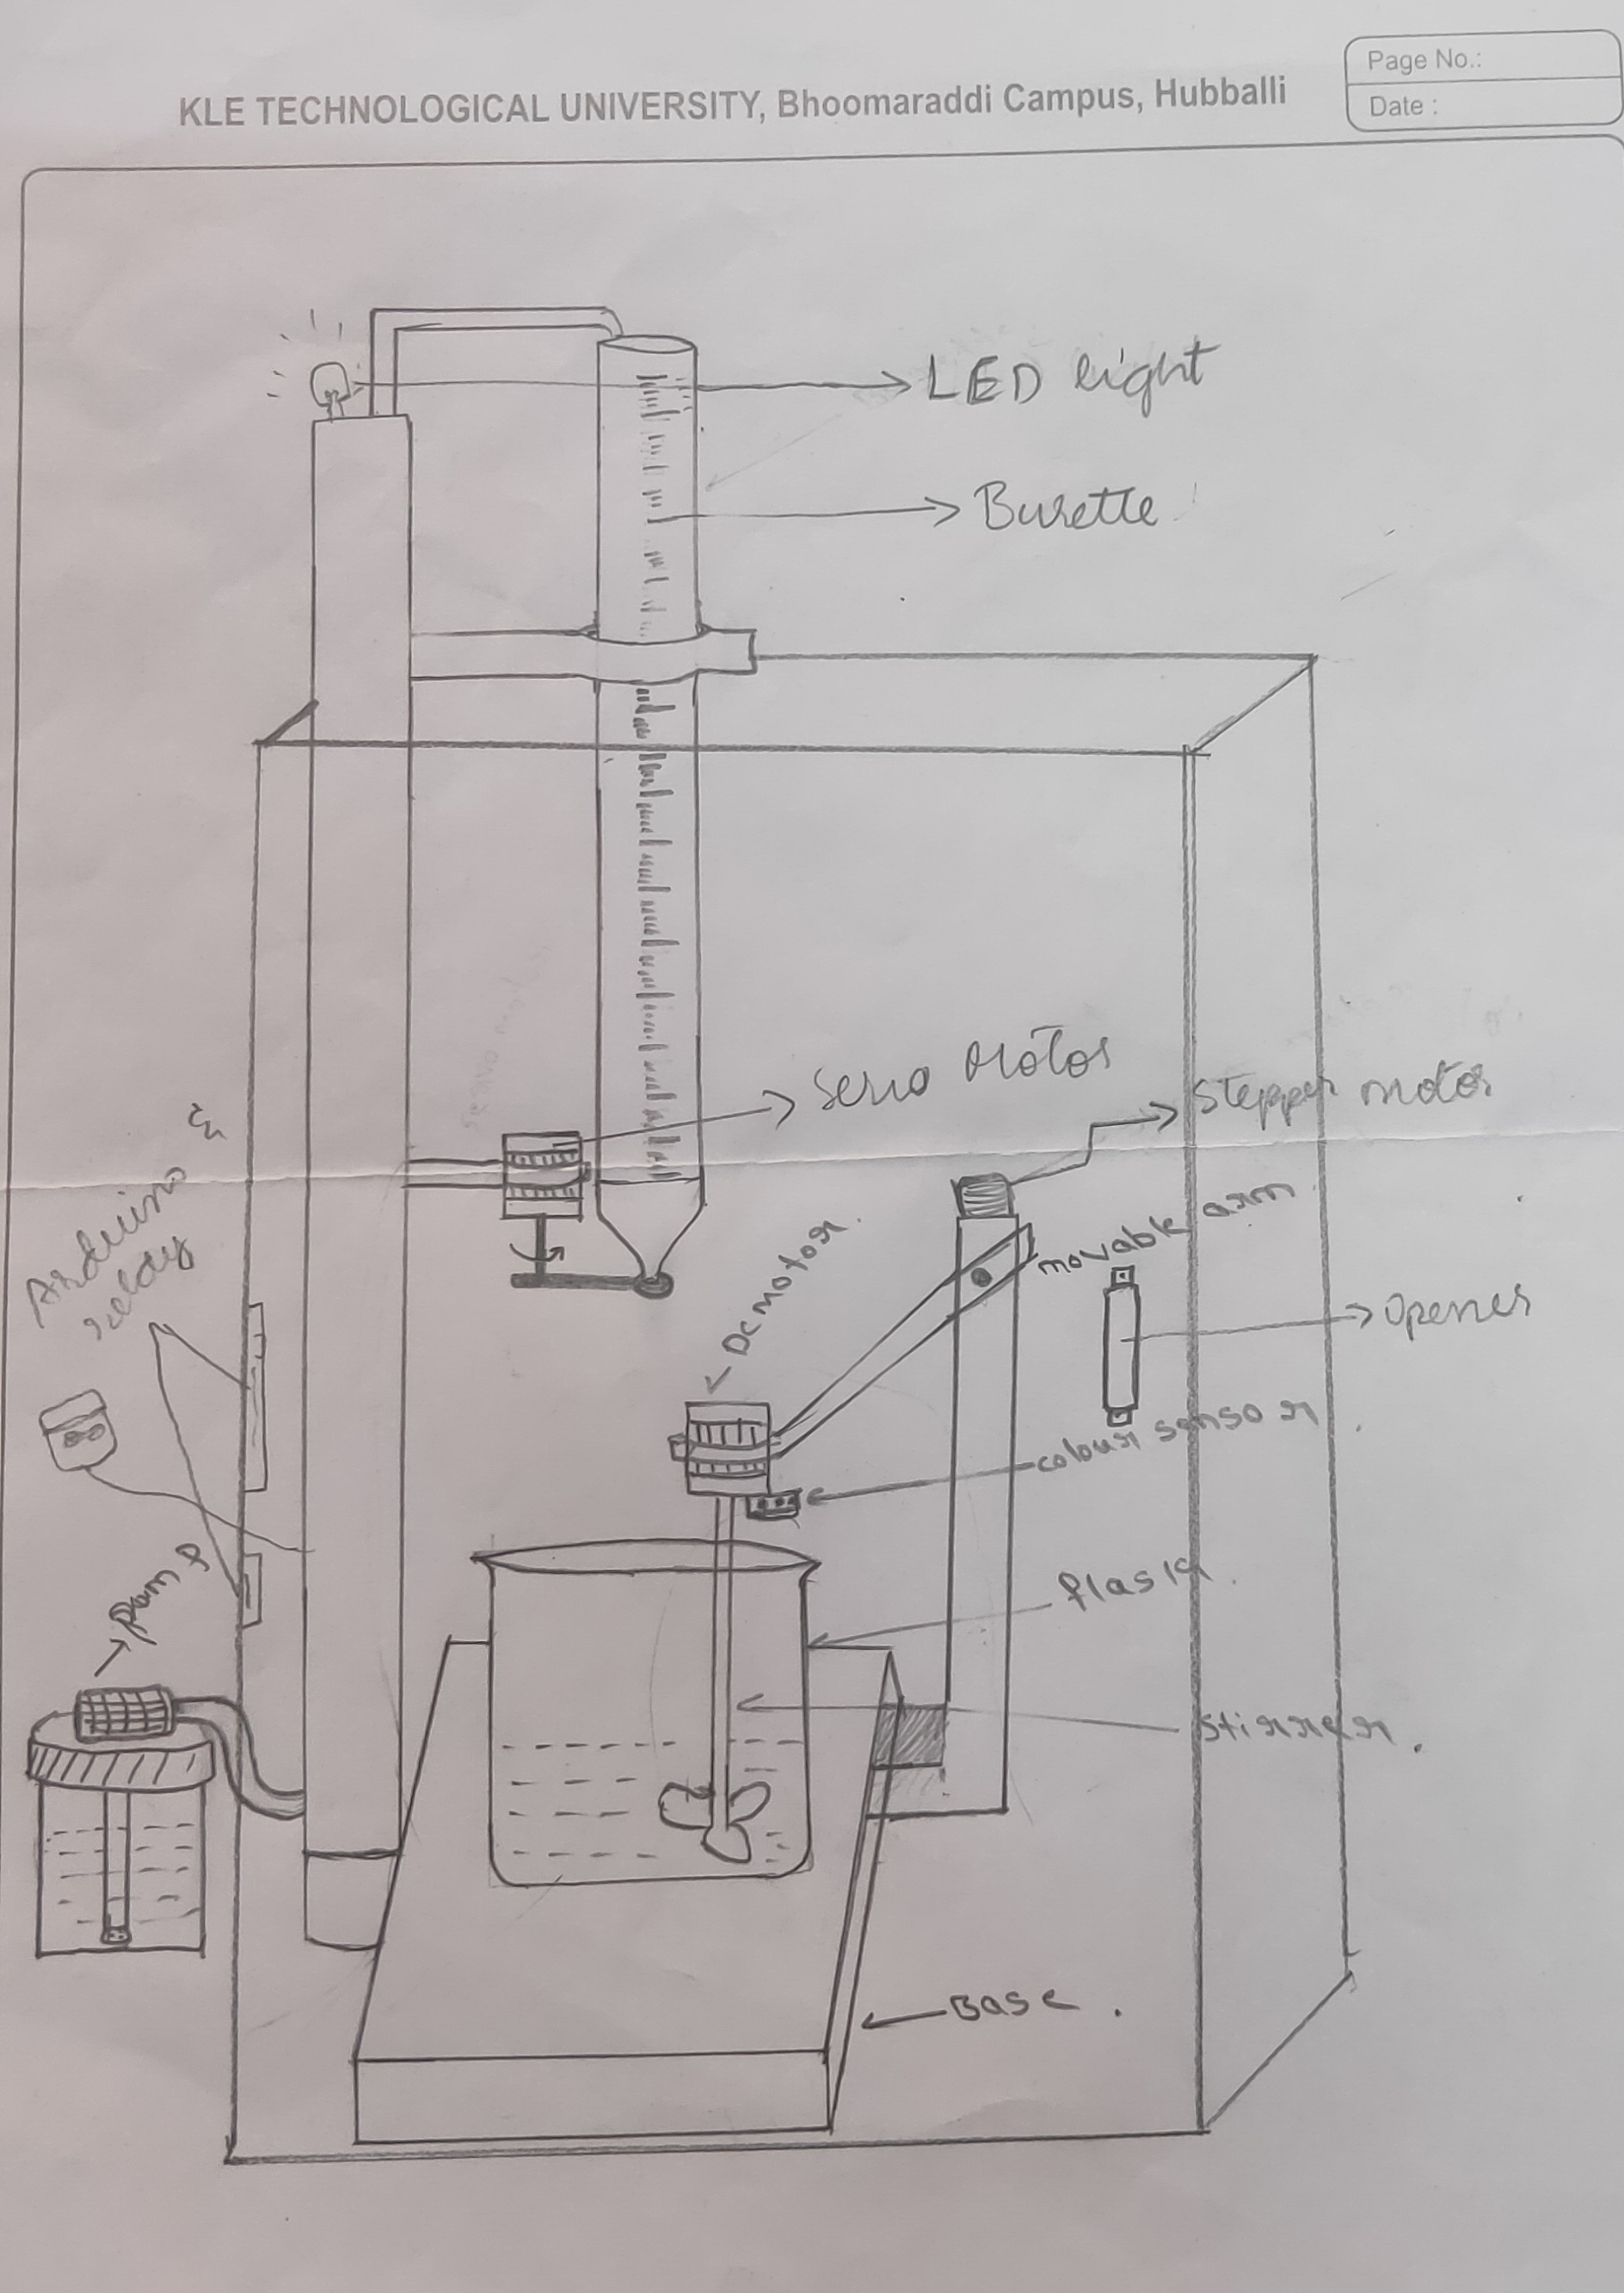 KLE TECHNOLOGICAL UNIVERSITY, Bhoomaraddi Campus, Hubballi
Page No.:
Date :
LED light
Burette
Servo Motor
Stepper motor
&
Arduino
movable arm
DC motor
Opener
colour sensor
Pump
flask
stirrer
Base